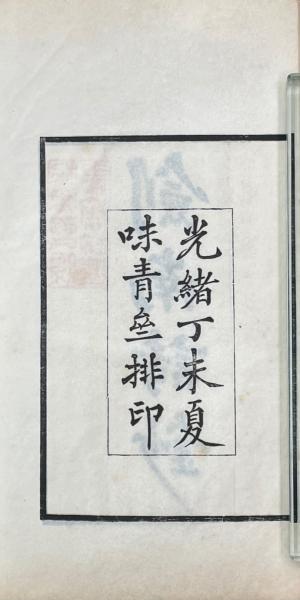 光緒丁未夏
味青亝排印